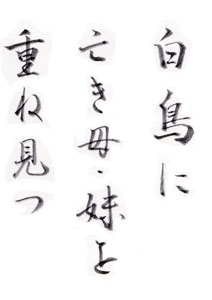 白鳥に
亡き母・妹と
重ね見つ